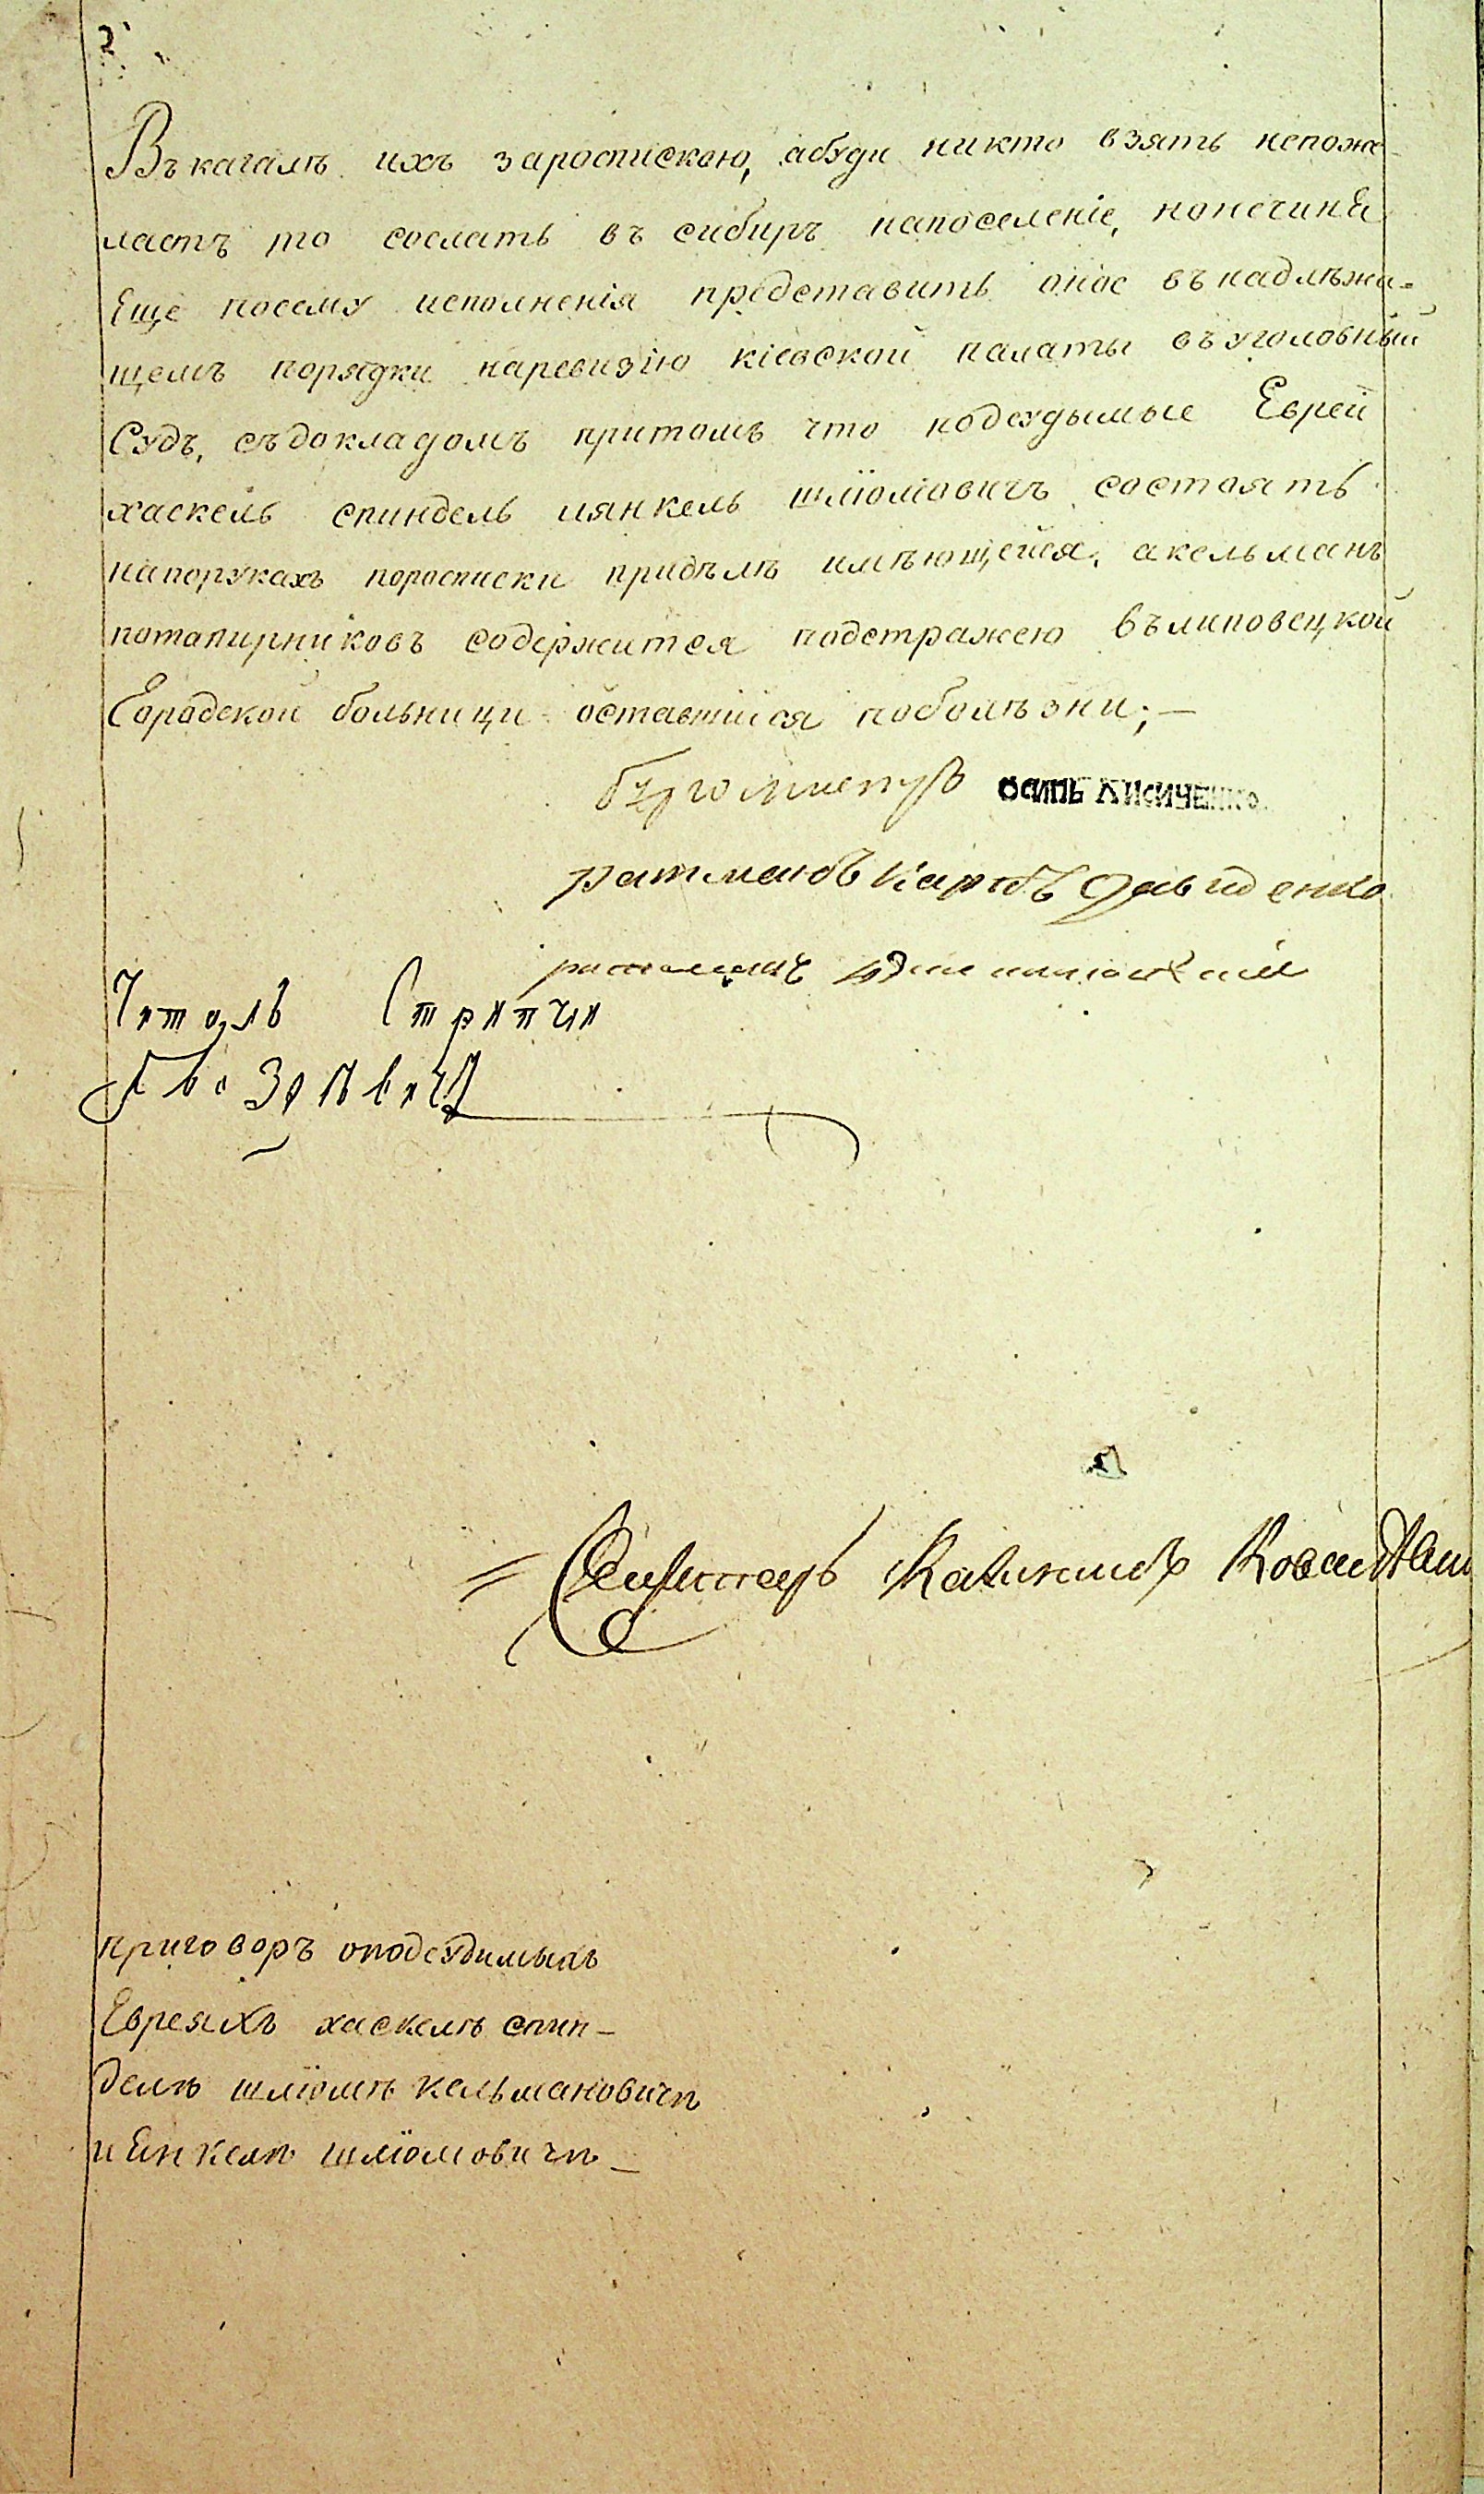 Въ кагалъ ихъ зароспискою, абуди никто взять непоже
лаетъ то сослать въ сибирь напоселеніе, нонечиня
Еще посему исполненія представить оное въ надлѣжа-
щемъ порядки наревизію кіевской палаты въ уголовный
Судъ, съдокладомъ притомъ что подсудымые Евреи
хаскель спиндель иянкель шліомовичъ состоятъ
напорукахъ поросписки придѣлѣ имѣющейся, акельманъ
потапирниковъ содержится подстражею въ липовецкой
Городской больници оставшійся поболѣзни; —
бургомистръ осипъ лисиченко
ратманъ карпъ давиденко
ратманъ
Читалъ Стряпчи
Гвоздѣвичъ
Секретарь
приговоръ оподсудимыхъ
Евреяхъ хаскелѣ спин-
делѣ шліомѣ кельмановичѣ
и Енкелѣ шліомовичѣ —